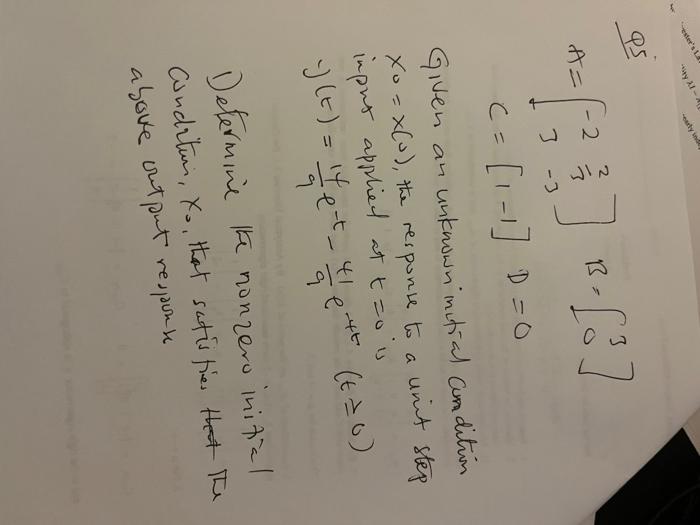 Q5.
A = [ -2 2/3
3 -3 ] B = [ 3
0 ]
C = [ 1 -1 ] D = 0
Given an unknown initial condition
x0 = x(0), the response to a unit step
input applied at t=0 is
y(t) = 14/9 e^-t - 41/9 e^-4t (t ≥ 0)
Determine the nonzero initial
condition, x0, that satisfies the
above output response